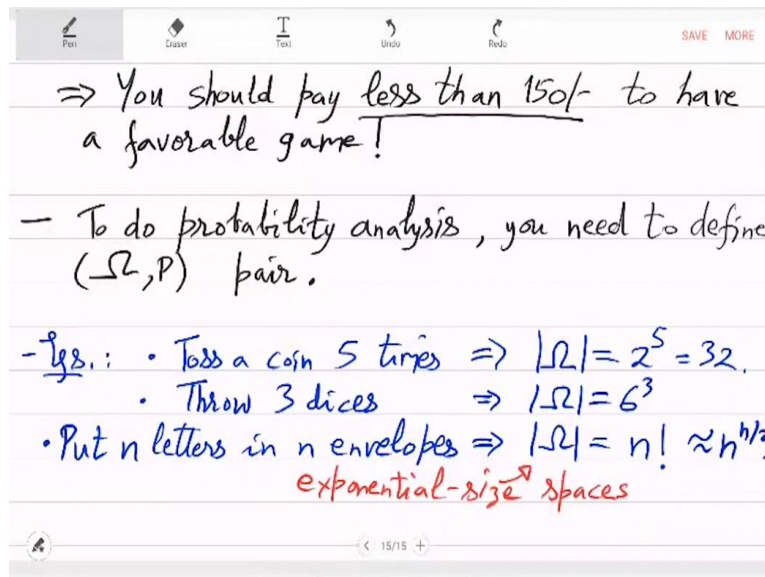 Pen Eraser Text Undo Redo SAVE MORE
⇒ You should pay less than 150/- to have
a favorable game!
- To do probability analysis, you need to define
(Ω, P) pair.
- Egs.: • Toss a coin 5 times ⇒ |Ω| = 2^5 = 32.
• Throw 3 dices ⇒ |Ω| = 6^3
• Put n letters in n envelopes ⇒ |Ω| = n! ≈ n^n/2
exponential-size spaces
15/15